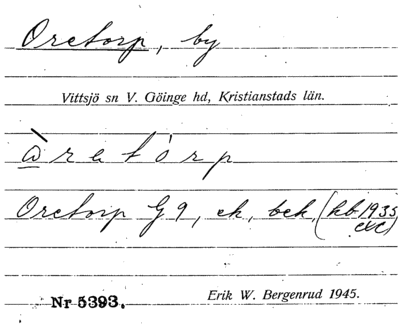 Oretorp, by
Vittsjö sn V. Göinge hd, Kristianstads län.
òretórp
Oretorp G 9, ek, bek, (kb 1935
exc)
Nr 5393.
Erik W. Bergenrud 1945.